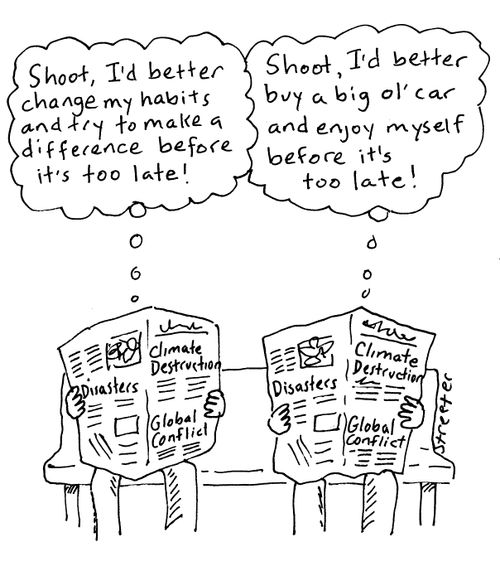 Shoot, I'd better
change my habits
and try to make a
difference before
it's too late!
Shoot, I'd better
buy a big ol' car
and enjoy myself
before it's
too late!
Disasters
Climate
Destruction
Global
Conflict
Disasters
Climate
Destruction
Global
Conflict
Streeter